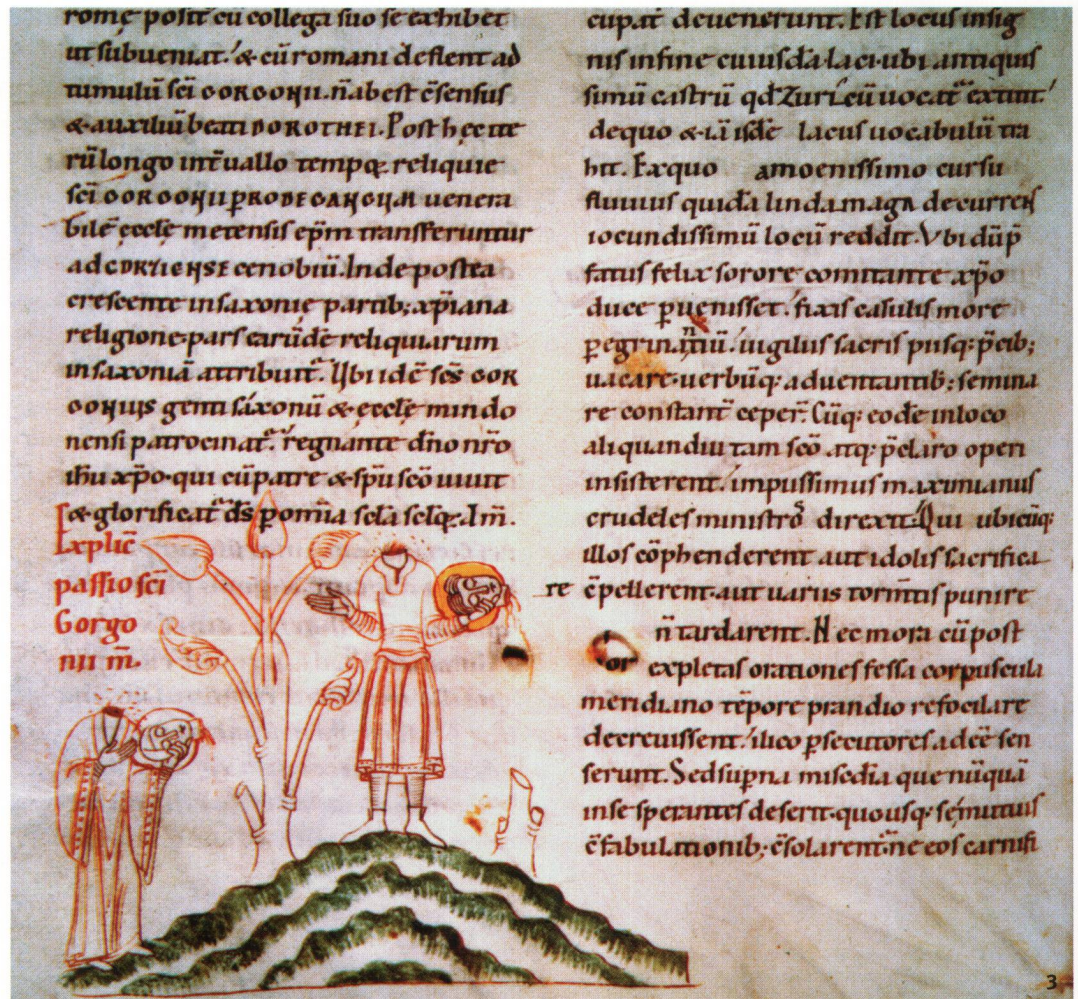 rome posit cū collega suo se exhibet
ut subueniat. & cū romani deflent ad
tumulū sc̄i GORGONII. n̄ abest c̄sensus
& auxiliū beati DOROTHEI. Post hec ite
rū longo int̄uallo tempoꝝ reliquie
sc̄i GORGONII ꝑ RODEGANGUM uenera
bilē ęccłę metensis ep̄m transferuntur
ad CORZIENSE cenobiū. Inde postea
crescente in saxonię partib; xp̄iana
religione pars earūdē reliquiarum
in saxoniā attribuit̃. Ubi idē sc̄s GOR
GONIUS genti saxonū & ęccłę mindo
nensi patrocinat̃. regnante dn̄o nr̄o
ihu xp̄o. qui cū patre & sp̄u sc̄o uiuit
& glorificat̃ ds̄ p om̄ia scła scłoꝝ. Am̄.
Explic̄
passio sc̄i
Gorgo
nii m̄.
cupat̃ deuenerunt. Est locus insig
nis in fine cuiusdā laci. ubi antiquis
simū castrū qđ Zuricū uocat̃ extitit.
de quo & iā isdē lacus uocabulū tra
hit. Ex quo amoenissimo cursu
fluuius quidā lindamaga decurrens
iocundissimū locū reddit. Vbi dū p̄
fatus felix sorore comitante xp̄o
duce ꝑuenisset. fixis casulis more
ꝑegrinantiū. uigiliis sacris piisq; p̄cib;
uacare uerbūq; aduentantib; semina
re constant̃ ceper̄. Cūq; eodē in loco
aliquandiu tam sc̄o atq; p̄claro operi
insisterent. impiissimus maximianus
crudeles ministros direxit. Qui ubicūq;
illos cōphenderent aut idolis sacrifica
re c̄pellerent. aut uariis torm̄tis punire
n̄ tardarent. Nec mora cū post
expletas orationes fessa corpuscula
meridiano tēpore prandio refocilare
decreuissent. ilico ꝑsecutores adeē sen
serunt. Sed suꝑna misc̄dia que nūquā
in se sperantes deserit. quousq; se mutuis
c̄fabulationib; c̄solarent̃. ne eos carnifi
3